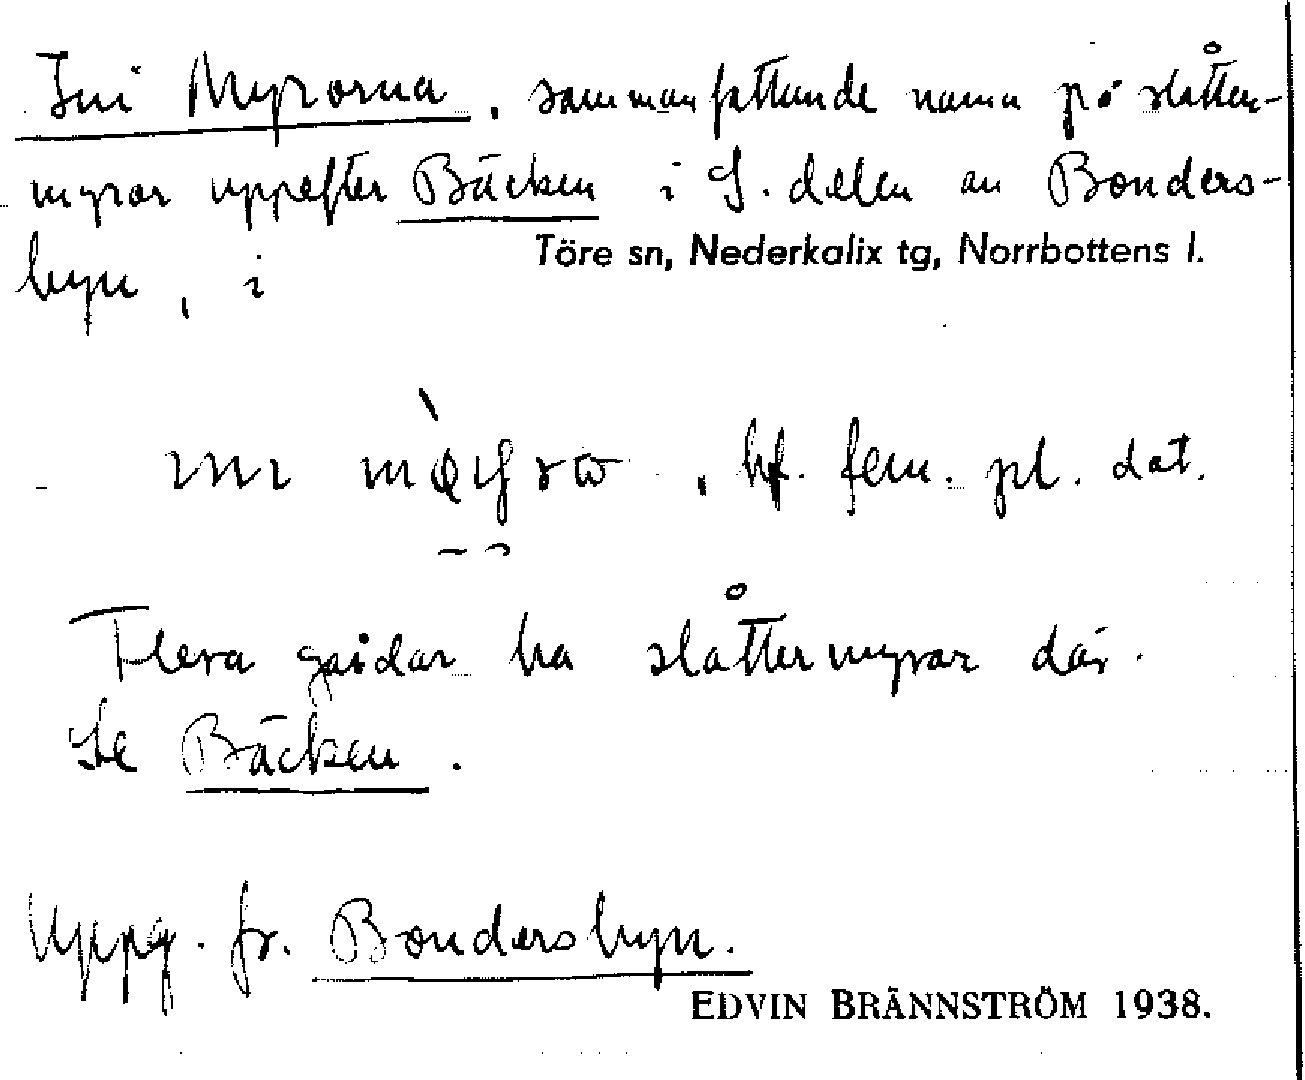 Ini Myrorna, sammanfattande namn på slåtter-
myrar uppefter Bäcken i S. delen av Bonders-
Töre sn, Nederkalix tg, Norrbottens l.
byn, i
bf. fem. pl. dat.
Flera gårdar ha slåttermyrar där.
Se Bäcken.
Uppg. fr. Bondersbyn.
EDVIN BRÄNNSTRÖM 1938.